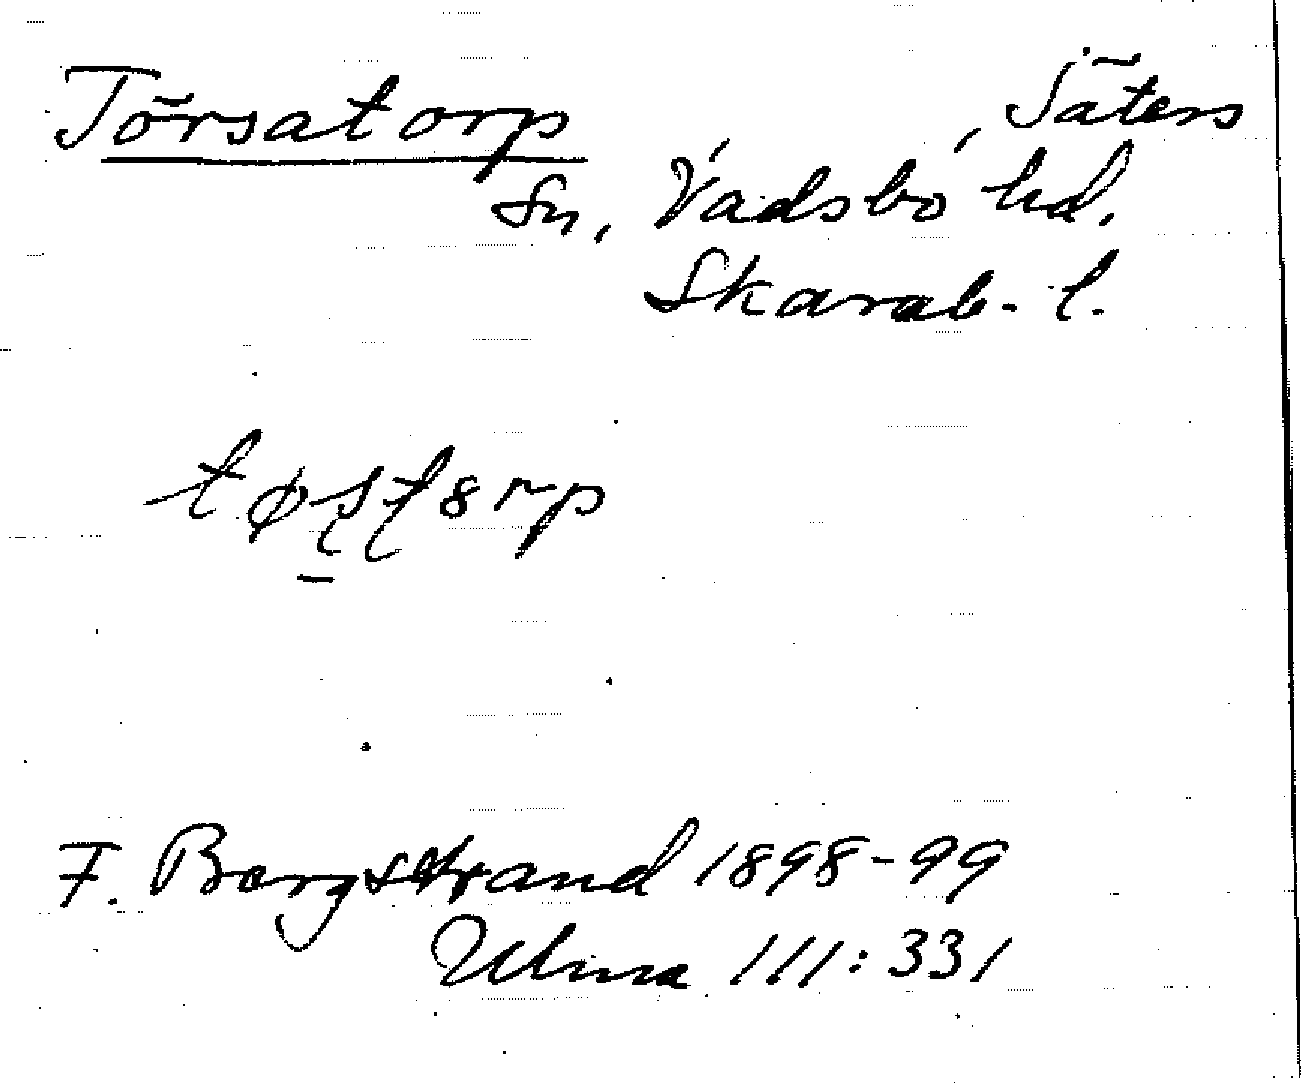 Törsatorp, Säters
Sn, Vadsbo hd.
Skarab. l.
F. Bergstrand 1898-99
Ulma 111:331